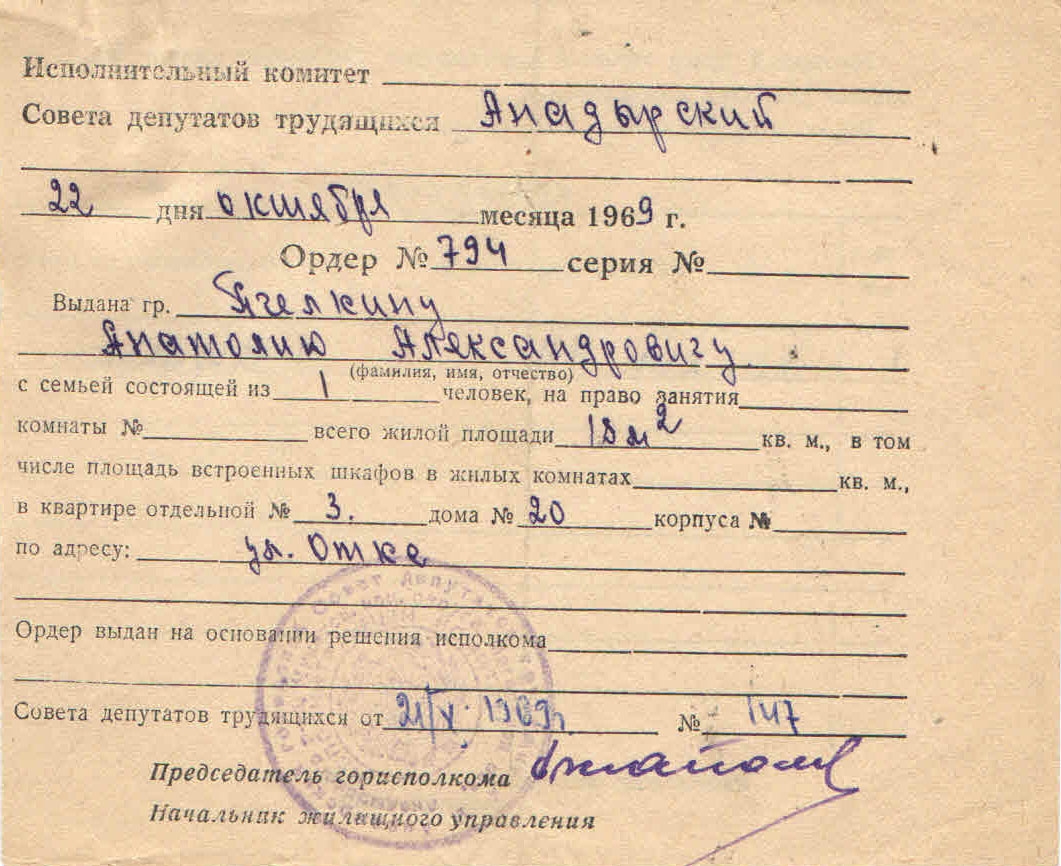 Исполнительный комитет
Совета депутатов трудящихся Анадырский
22 дня октября месяца 1969 г.
Ордер № 794 серия №
Выдана гр. Пчелкину
Анатолию Александровичу
(фамилия, имя, отчество)
с семьей состоящей из 1 человек, на право занятия
комнаты № всего жилой площади 18 м2 кв. м., в том
числе площадь встроенных шкафов в жилых комнатах кв. м.,
в квартире отдельной № 3. дома № 20 корпуса №
по адресу: ул. Отке
Совет Депутатов
Ордер выдан на основании решения исполкома
Совета депутатов трудящихся от 1969г № 147
Председатель горисполкома
Начальник жилищного управления